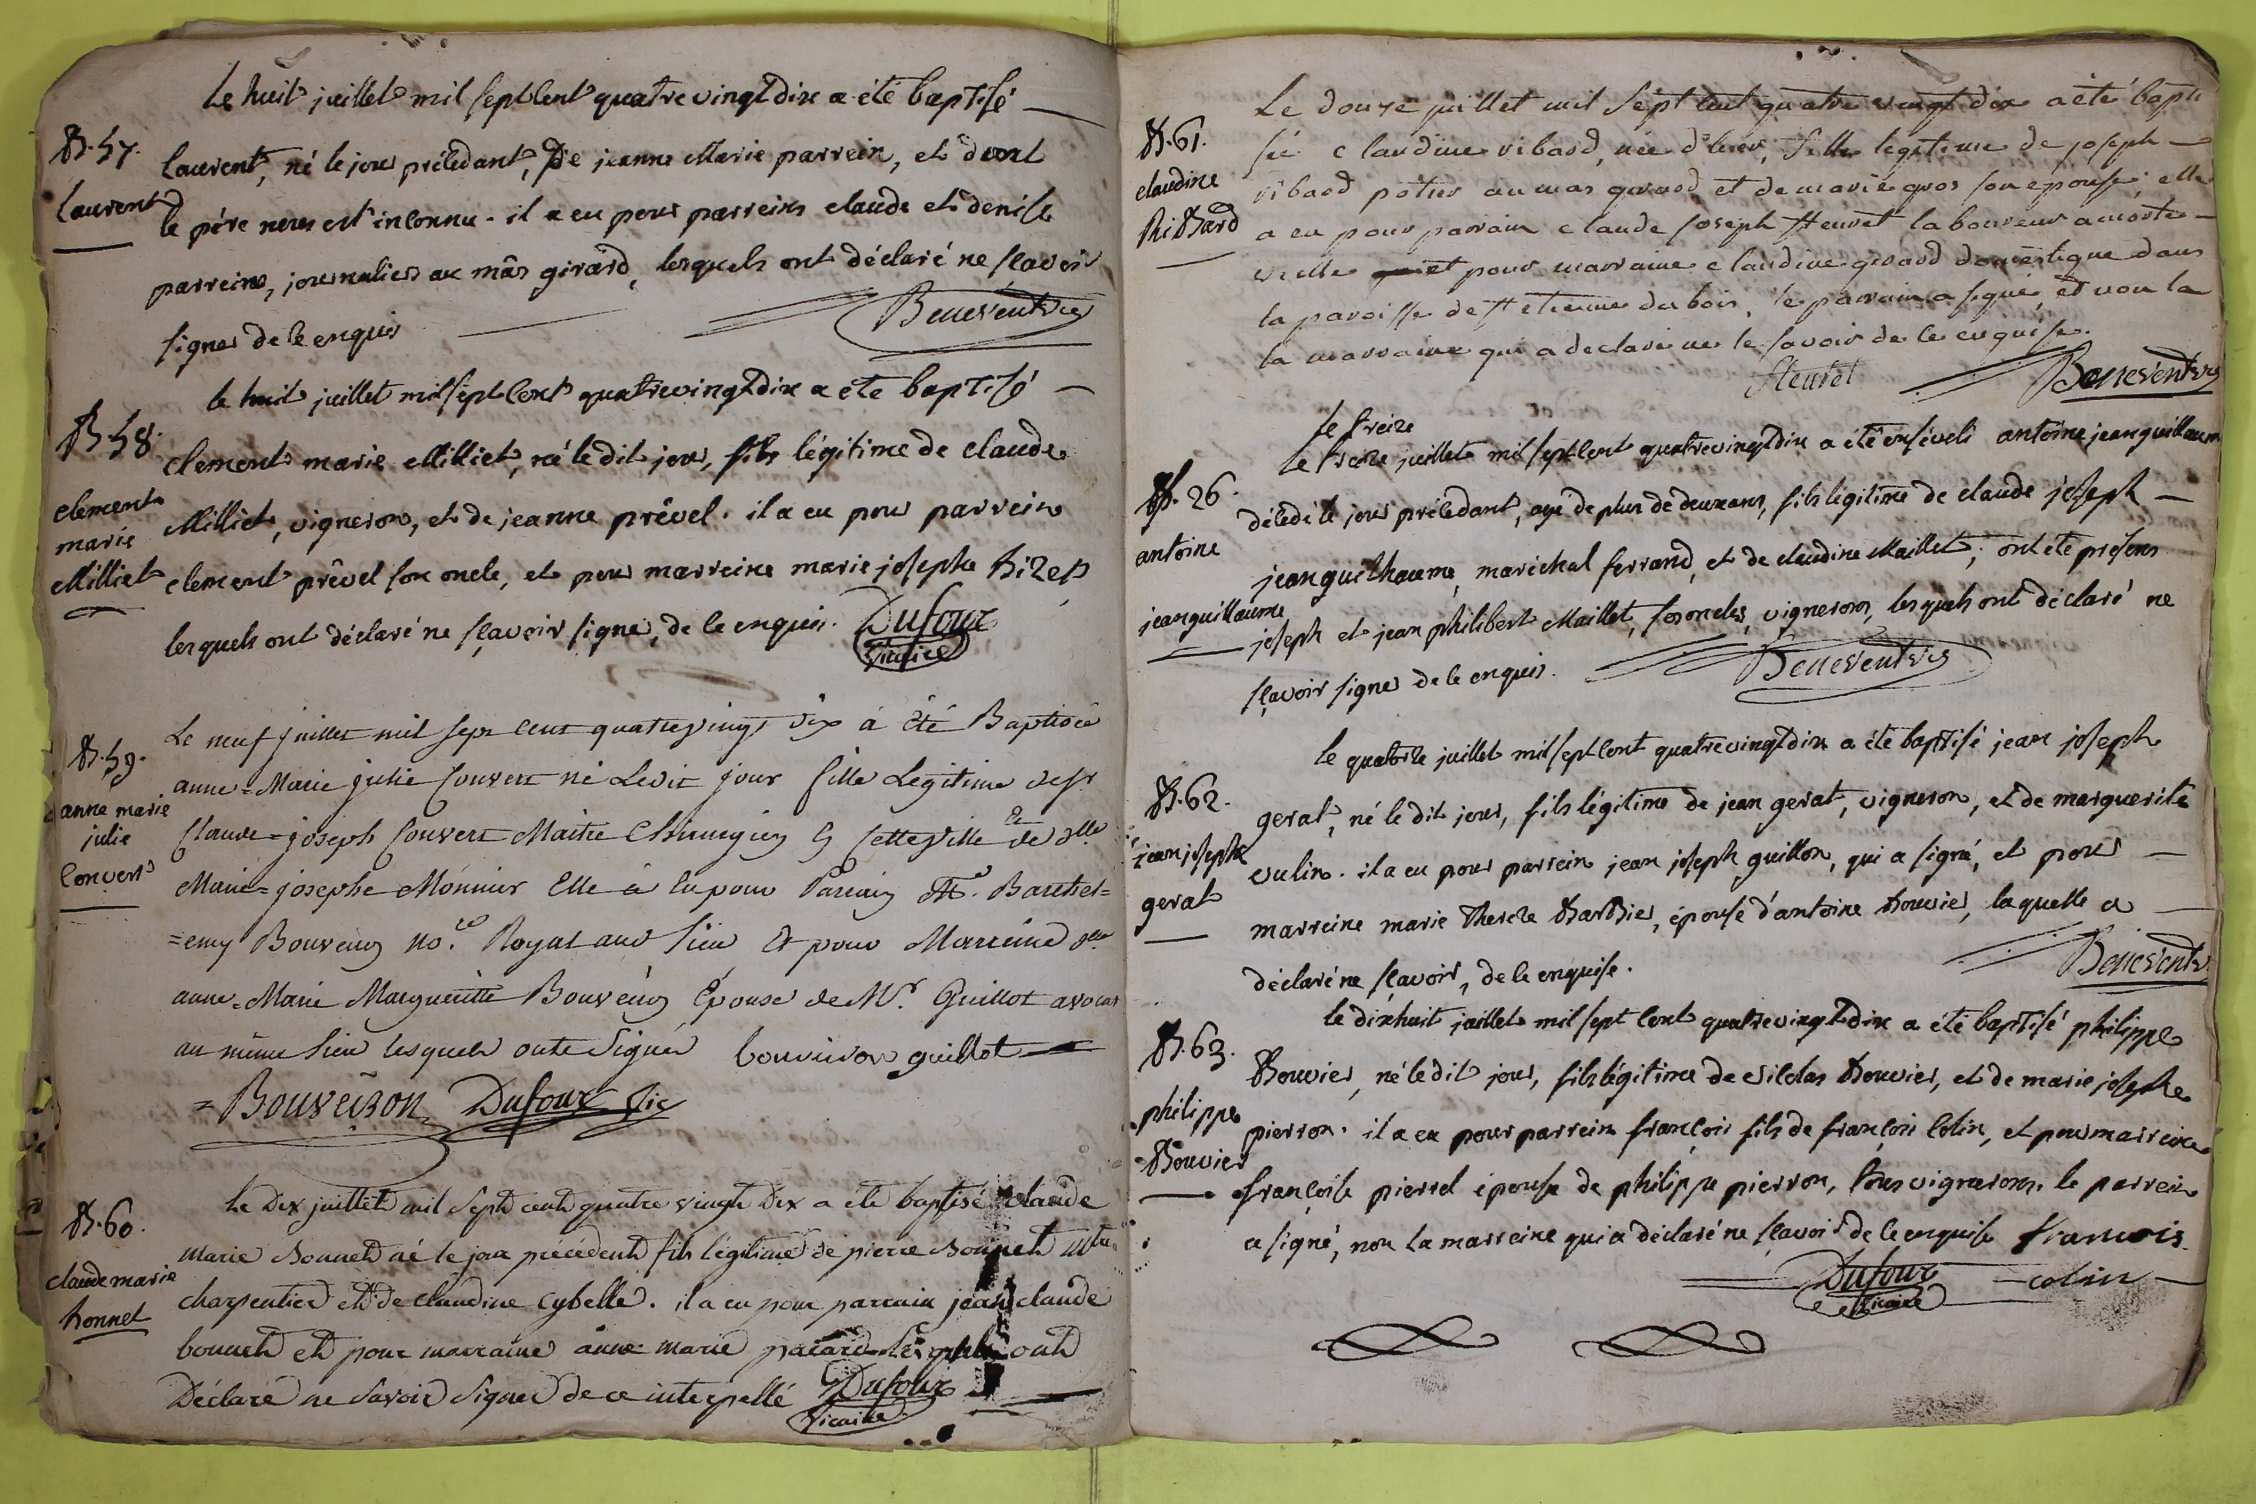 Le huit juillet mil sept cent quatre vingt dix a été baptisé
B. 57.
Laurent
laurent, né le jour précédant, de jeanne Marie parrein, et dont
le pére nous est inconnu. il a eu pour parreins claude et denise
parreins, journaliers au mâs girard, lesquels ont déclaré ne sçavoir
signer de ce enquis
Beneventvre
le huit juillet mil sept cent quatre vingt dix a eté baptisé
B. 58.
clement
marie
Milliet
clement marie Milliet, né le dit jour, fils légitime de claude
Milliet, vigneron, et de jeanne prêvel. il a eu pour parrein
clement prêvel son oncle, et pour marreine marie josephe
lesquels ont déclaré ne sçavoir signe, de ce enquis. Dufour
vicaire
Le neuf juillet mil sept cent quatrevingt dix à été Baptisée
B. 59.
anne marie
julie
Convert
anne=Marie julie Convert né Ledit jour fille Légitime de sr
Claude=joseph Convert Maitre Chirurgien en Cette ville Et de dlle
Marie=josephe Mónnier Elle à Eu pour Parrain Barthel=
=emy Bouveiron no.re Royal aud Lieu Et pour Marreine dlle
anne=Marie Margueritte Bouveiron Epouse de Mr. Guillot avocat
au même Lieu lesquels onte Signer bouveiron guillot
=Bouveiron Dufour vic
Le Dix juillet mil Sept cent quatre vingt Dix a été baptisé claude
B. 60.
claude marie
bonnet
marie Bonnet né le jour précédent fils légitime de pierre Bonnet mtre
charpentier et de claudine cybelle. il a eu pour parrain jean claude
bonnet et pour marraine anne marie pacard lesquels ont
Déclaré ne Savoir Signer de ce interpellé Dufour
vicaire
Le douze juillet mil sept cent quatre vingt dix a été bapti
B. 61.
claudine
Ribard
sée claudine ribard, née d'hier, fille légitime de joseph
ribard potier au mas girard et de marie gros son épouse; elle
a eu pour parrain claude joseph laboureur a
et pour marraine claudine girard domestique dans
la paroisse de st etienne du bois, le parrain a signé, et non la
la marraine qui a declaré ne le savoir de ce enquise.
Beneventvre
Le treize
Le treize juillet mil sept cent quatre vingt dix a été enséveli antoine jeanguillaume
Sp. 26.
antoine
jeanguillaume
décédé le jour précédant, agé de plus de deux ans, fils légitime de claude joseph
jeanguilhaume, maréchal ferrand, et de claudine Maillet; ont été présens
joseph et jean philibert Maillet, ses oncles, vignerons, lesquels ont déclaré ne
sçavoir signer de ce enquis.
Beneventvre
le quatorze juillet mil sept cent quatre vingt dix a été baptisé jean joseph
B. 62.
jean joseph
gerat
gerat, né le dit jour, fils légitime de jean gerat, vigneron, et de marguerite
vulin. il a eu pour parrein jean joseph guillon, qui a signé, et pour
marreine marie therese Barbier, épouse d'antoine Bouvier, laquelle a
déclaré ne sçavoir, de ce enquise.
Beneventvr
le dixhuit juillet mil sept cent quatre vingt dix a été baptisé philippe
B. 63.
philippe
Bouvier
Bouvier, né le dit jour, fils légitime de nicolas Bouvier, et de marie josephe
pierron. il a eu pour parrein françois fils de françois Colin, et pour marreine
françoise pierrel épouse de philippe pierron, tous vignerons. le parrein
a signé, non la marreine qui a déclaré ne sçavoir de ce enquise francois
Dufour colin
vicaire